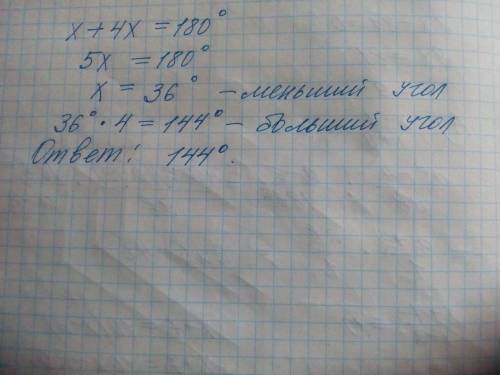 x + 4x = 180°
5x = 180°
x = 36° - меньший угол
36° · 4 = 144° - больший угол
Ответ: 144°.